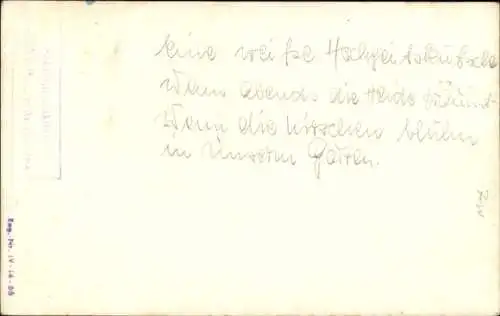 eine weiße Hochzeitskutsche
Wenn abends die Heide träumt
Wenn die Kirschen blühn
in unserm Garten.
Eing. Nr. IV-14-88